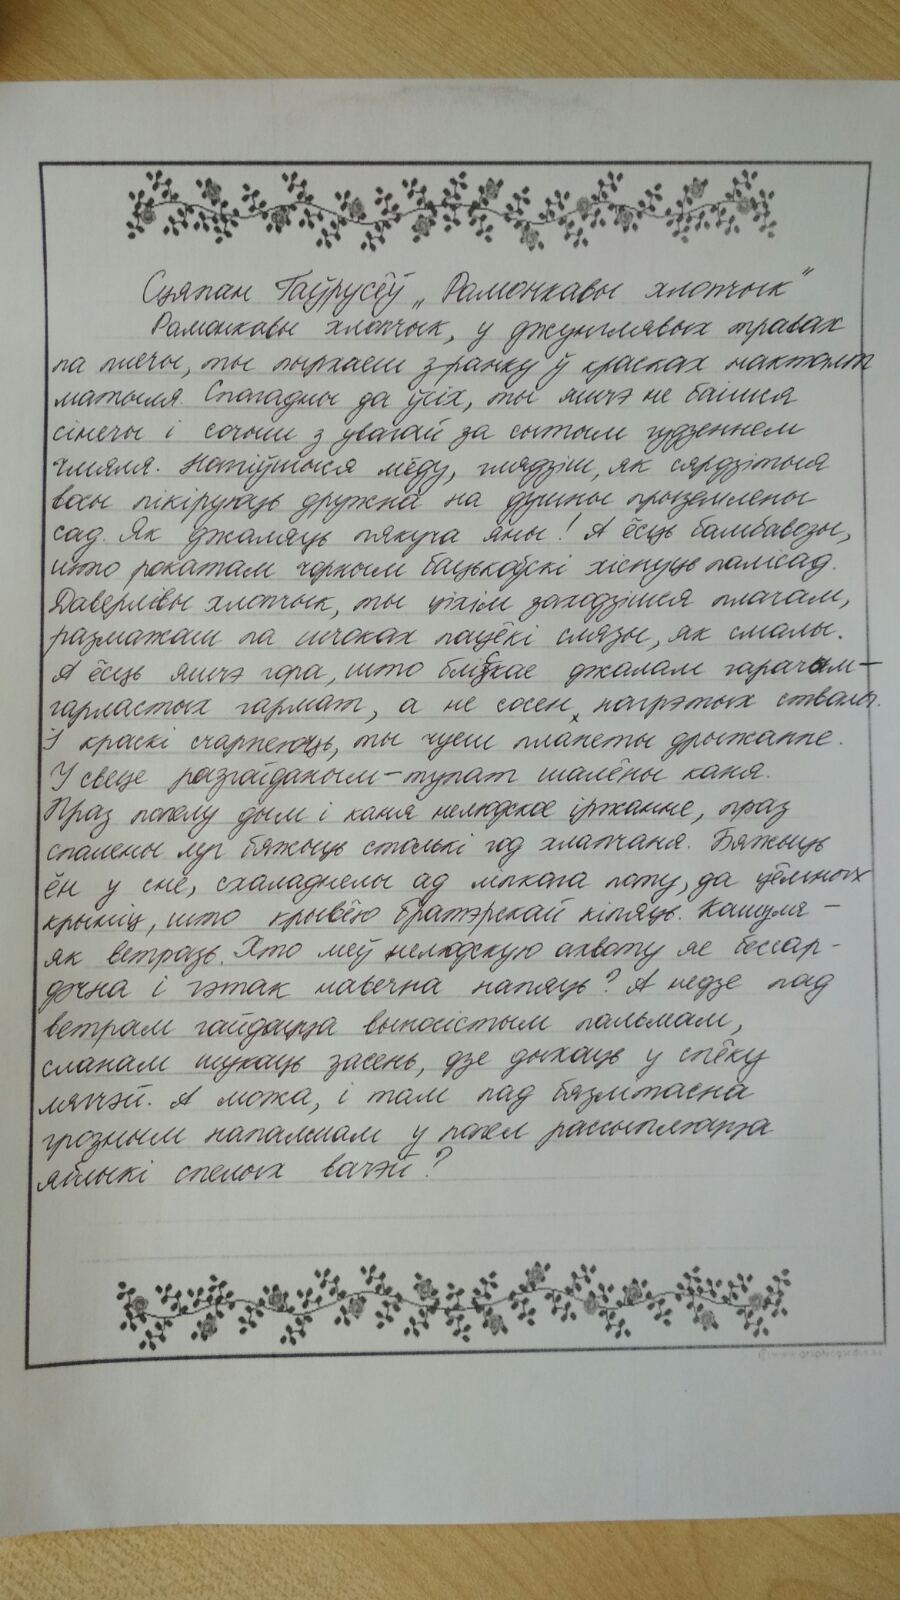 Сцяпан Гаўрусёў „Рамонкавы хлопчык"
Рамонкавы хлопчык, у джунглявых травах
па плечы, ты пырхаеш зранку ў красках накшталт
матыля. Спагадны да ўсіх, ты яшчэ не баішся
сінечы і сочыш з увагай за сытым гудзеннем
чмяля. Напіўшыся мёду, глядзіш, як сярдзітыя
восы пікіруюць дружна на душны прыземлены
сад. Як джаляць пякуча яны! А ёсць бамбавозы,
што рокатам чорным бацькоўскі хіснуць палісад.
Даверлівы хлопчык, ты ціхім заходзішся плачам,
размажаш па шчоках пацёкі слязы, як смалы.
А ёсць яшчэ гора, што бліскае джалам гарачым–
гарластых гармат, а не сосен, нагрэтых ствалы.
І краскі счарнеюць, ты чуеш планеты дрыжанне.
У свеце разгайданым–тупат шалёны каня.
Праз попелу дым і каня нелюдскае іржанне, праз
спалены луг бяжыць столькі год хлапчаня. Бяжыць
ён у сне, схаладнелы ад ліпкага поту, да цёмных
крыніц, што крывёю братэрскай кіпяць. Кашуля –
як ветразь. Хто меў нелюдскую ахвоту яе бессар-
дэчна і гэтак навечна напяць? А недзе пад
ветрам гайдацца выносістым пальмам,
сланам шукаць засень, дзе дыхаць у спёку
лягчэй. А можа, і там пад бязлітасна
грозным напалмам у попел рассыплюцца
яблыкі спелых вачэй?